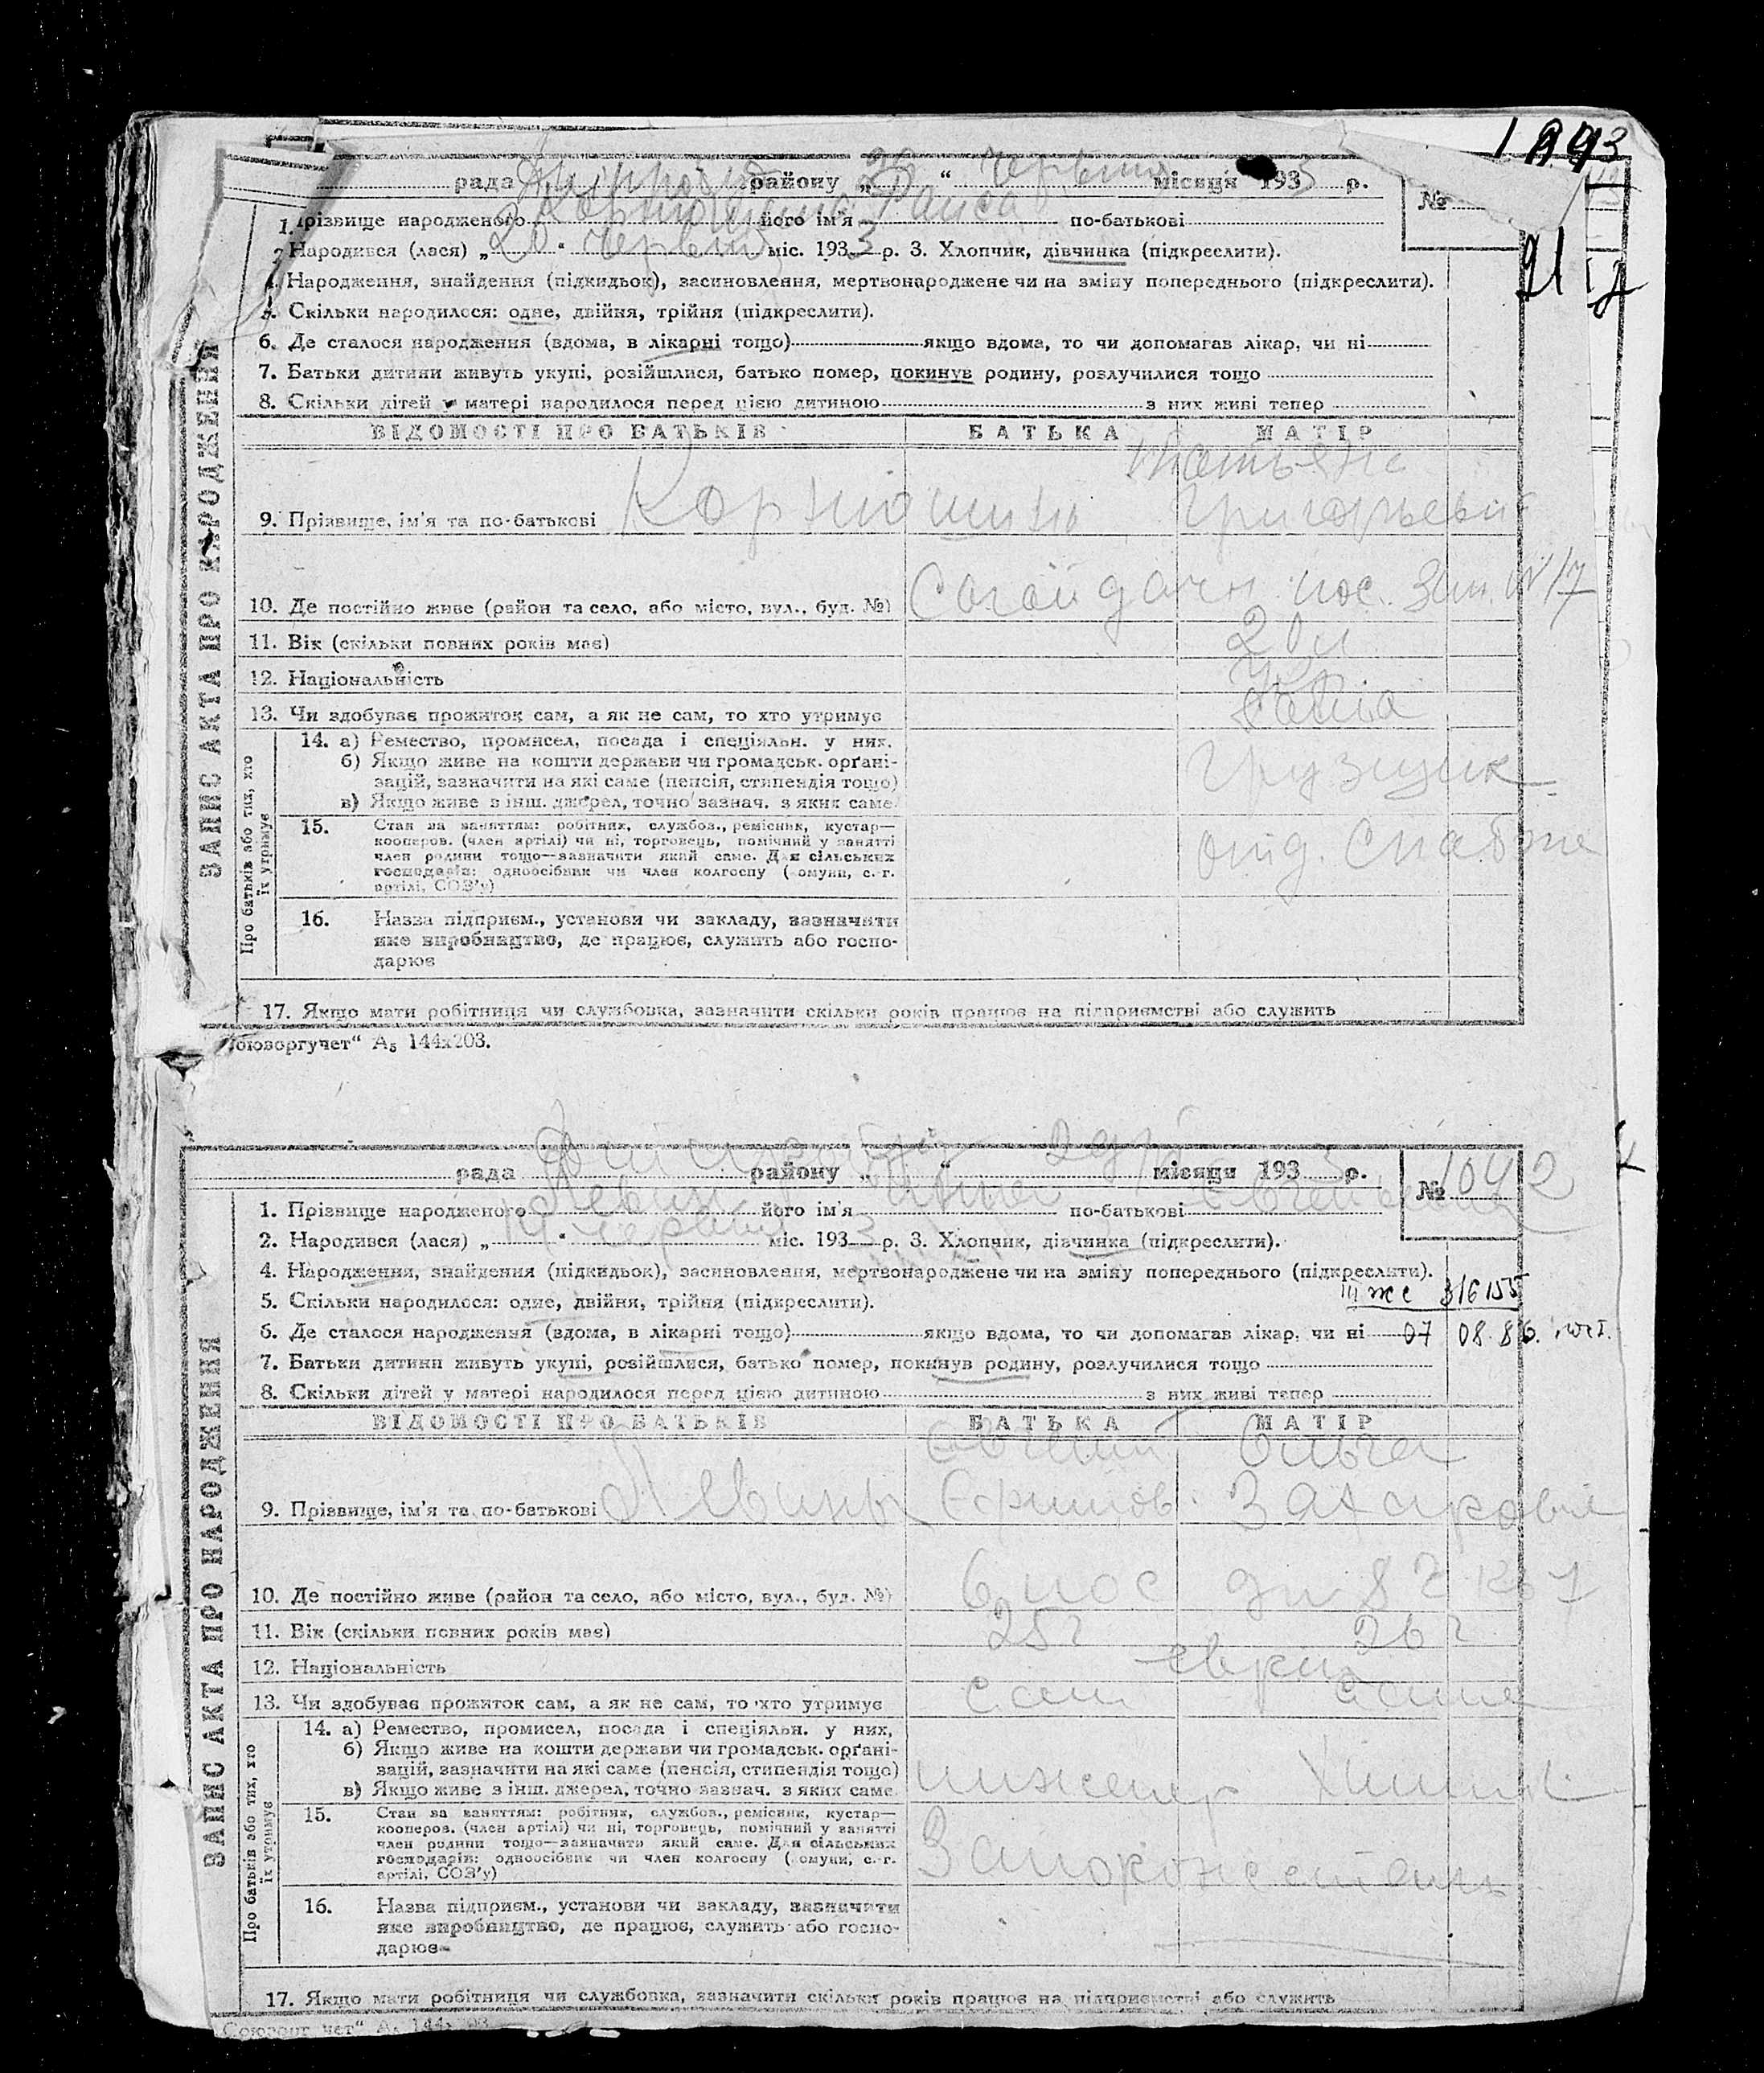 1
рада району „ 29 “ червня місяця 1933 р.
№
1. Прізвище народженого його ім'я Раиса по-батькові
2. Народився (лася) „ 20 “ червня міс. 1933 р. 3. Хлопчик, дівчинка (підкреслити).
4. Народження, знайдення (підкидьок), засиновлення, мертвонароджене чи на зміну попереднього (підкреслити).
5. Скільки народилося: одне, двійня, трійня (підкреслити).
6. Де сталося народження (вдома, в лікарні тощо) якщо вдома, то чи допомагав лікар, чи ні
7. Батьки дитини живуть укупі, розійшлися, батько помер, покинув родину, розлучилися тощо
8. Скільки дітей у матері народилося перед цією дитиною з них живі тепер
ЗАПИС АКТА ПРО НАРОДЖЕННЯ
ВІДОМОСТІ ПРО БАТЬКІВ БАТЬКА МАТІР
Татьяна
9. Прізвище, ім'я та по-батькові Григорьевна
10. Де постійно живе (район та село, або місто, вул., буд. №) пос. №17
11. Вік (скільки повних років має) 20
12. Національність Укр
13. Чи здобуває прожиток сам, а як не сам, то хто утримує сама
Про батьків або тих, хто їх утримує
14. а) Ремество, промисел, посада і спеціяльн. у них.
б) Якщо живе на кошти держави чи громадськ. орґані-
зацій, зазначити на які саме (пенсія, стипендія тощо)
в) Якщо живе з інш. джерел, точно зазнач. з яких саме
грузщик
15. Стан за заняттям: робітник, службов., ремісник, кустар—
кооперов. (член артілі) чи ні, торговець, помічний у занятті
член родини тощо—зазначити який саме. Для сільських
господарів: одноосібник чи член колгоспу (комуни, с.-г.
артілі, СОЗ'у)
16. Назва підприєм., установи чи закладу, зазначити
яке виробництво, де працює, служить або госпо-
дарює
17. Якщо мати робітниця чи службовка, зазначити скільки років працює на підприємстві або служить
оюзоргучет“ А5 144х203.
рада району „ 29 “ місяця 1933 р.
№ 1042
1. Прізвище народженого його ім'я по-батькові
2. Народився (лася) „ 14 “ червня міс. 1933 р. 3. Хлопчик, дівчинка (підкреслити).
4. Народження, знайдення (підкидьок), засиновлення, мертвонароджене чи на зміну попереднього (підкреслити).
5. Скільки народилося: одне, двійня, трійня (підкреслити).
6. Де сталося народження (вдома, в лікарні тощо) якщо вдома, то чи допомагав лікар, чи ні 07 08.86.
7. Батьки дитини живуть укупі, розійшлися, батько помер, покинув родину, розлучилися тощо
8. Скільки дітей у матері народилося перед цією дитиною з них живі тепер
ЗАПИС АКТА ПРО НАРОДЖЕННЯ
ВІДОМОСТІ ПРО БАТЬКІВ БАТЬКА МАТІР
Ольга
9. Прізвище, ім'я та по-батькові Левины Ефимов. Захаровна
10. Де постійно живе (район та село, або місто, вул., буд. №) 6 пос 82 кв 7
11. Вік (скільки повних років має) 25 г 26 г
12. Національність евреи
13. Чи здобуває прожиток сам, а як не сам, то хто утримує сам сама
Про батьків або тих, хто їх утримує
14. а) Ремество, промисел, посада і спеціяльн. у них,
б) Якщо живе на кошти держави чи громадськ. орґані-
зацій, зазначити на які саме (пенсія, стипендія тощо)
в) Якщо живе з інш. джерел, точно зазнач. з яких саме
инженер Химик
15. Стан за заняттям: робітник, службов., ремісник, кустар—
кооперов. (член артілі) чи ні, торговець, помічний у занятті
член родини тощо—зазначити який саме. Для сільських
господарів: одноосібник чи член колгоспу (комуни, с.-г.
артілі, СОЗ'у)
16. Назва підприєм., установи чи закладу, зазначити
яке виробництво, де працює, служить або госпо-
дарює
17. Якщо мати робітниця чи службовка, зазначити скільки років працює на підприємстві або служить